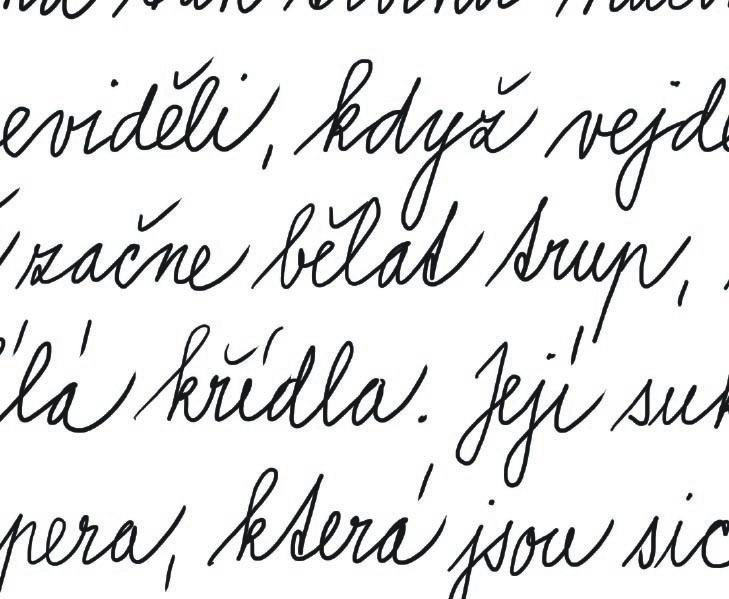 eviděli, když vejde
začne bělat trup,
ílá křídla. Její suk
pera, která jsou sic